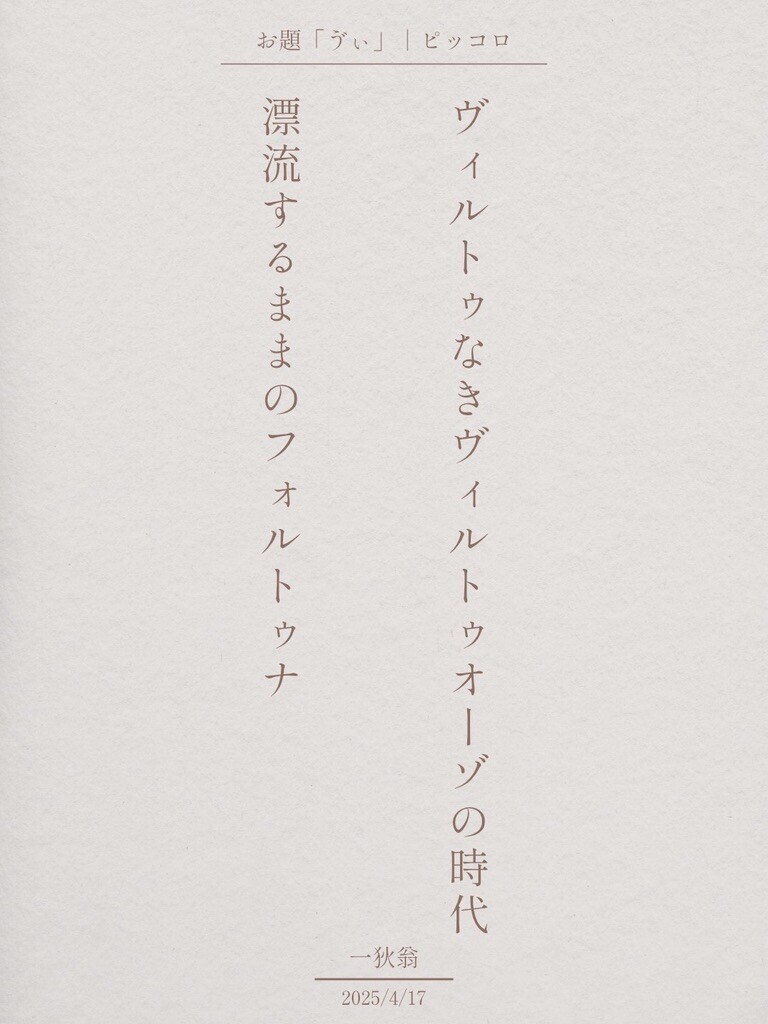 お題「ゔぃ」｜ピッコロ
ヴィルトゥなきヴィルトゥオーゾの時代
漂流するままのフォルトゥナ
一狄翁
2025/4/17